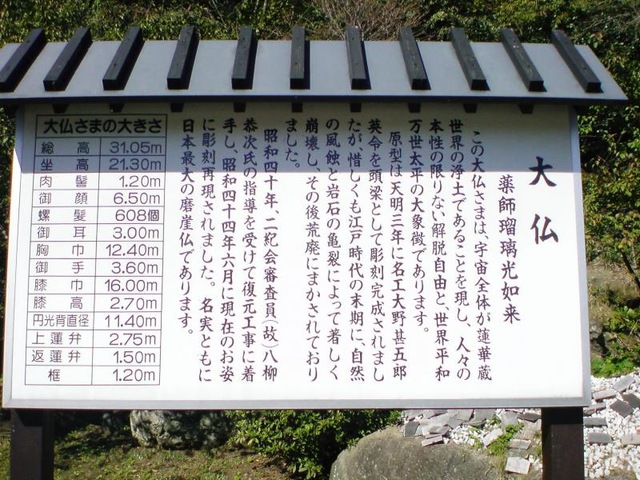 大仏
薬師瑠璃光如来
この大仏さまは、宇宙全体が蓮華蔵
世界の浄土であることを現し、人々の
本性の限りない解脱自由と世界平和
万世太平の大象徴であります。
原型は天明三年に名工大野甚五郎
英令を頭梁として彫刻完成されまし
たが惜しくも江戸時代の末期に、自然
の風蝕と岩石の亀裂によって著しく
崩壊し、その後荒廃にまかされており
ました。
昭和四十年、二紀会審査員(故)八柳
恭次氏の指導を受けて復元工事に着
手し、昭和四十四年六月に現在のお姿
に彫刻再現されました。名実ともに
日本最大の磨崖仏であります。
大仏さまの大きさ
総高 31.05m
坐高 21.30m
肉髻 1.20m
御顔 6.50m
螺髪 608個
御耳 3.00m
胸巾 12.40m
御手 3.60m
膝巾 16.00m
膝高 2.70m
円光背直径 11.40m
上蓮弁 2.75m
返蓮弁 1.50m
框 1.20m